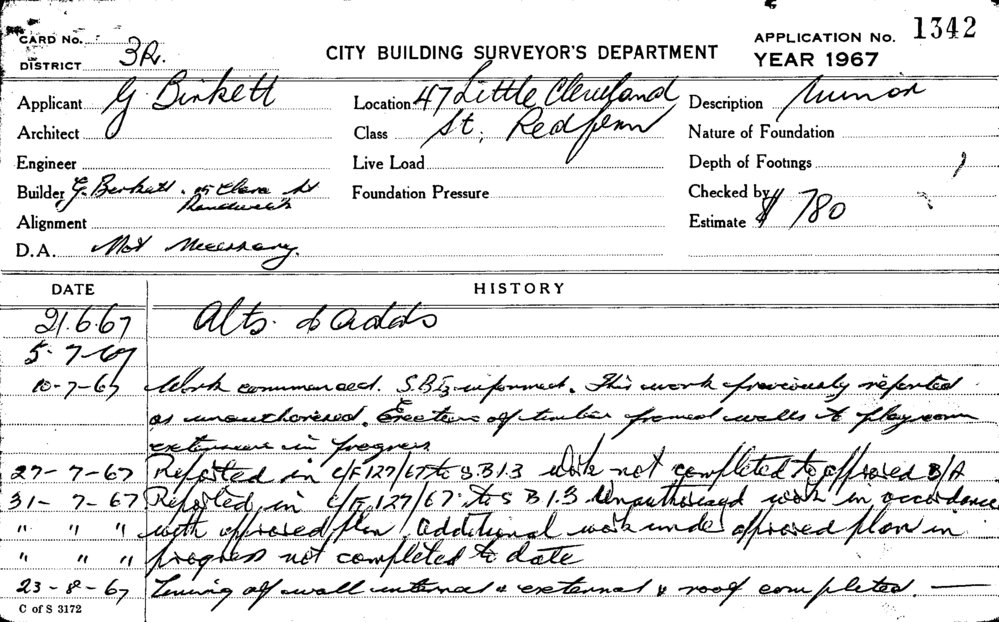 CARD No.
DISTRICT 3R.
CITY BUILDING SURVEYOR'S DEPARTMENT
APPLICATION No. 1342
YEAR 1967
Applicant G. Birkett
Architect
Engineer
Builder G. Berkett. Clara St
Randwick
Alignment
D.A. Not Necessary.
Location 47 Little Cleveland
Class St, Redfern
Live Load
Foundation Pressure
Description Minor
Nature of Foundation
Depth of Footings
Checked by
Estimate $ 780
DATE HISTORY
21.6.67 Alts. & Adds
5-7-67
10-7-67 Work commenced. S.B.I. informed. This work previously reported
as unauthorised. Erection of timber framed walls to playroom
extension in progress
27-7-67 Reported in C/F.127/67 to S.B.I.3 work not completed to approved B/A
31-7-67 Reported in C/F.127/67 to S B I.3 Unauthorised work in accordance
" " " with approved plan additional work under approved plan in
" " " progress not completed to date
23-8-67 Lining of wall internal & external & roof completed. —
C of S 3172